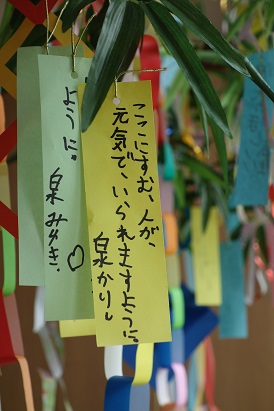 ここにすむ、人が、
元気で、いられますように。
泉かりん
ように。
泉みゆき.